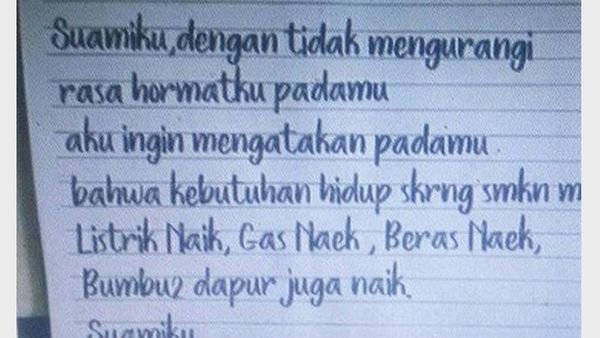 Suamiku, dengan tidak mengurangi
rasa hormatku padamu
aku ingin mengatakan padamu.
bahwa kebutuhan hidup skrng smkn m
Listrik Naik, Gas Naek, Beras Naek,
Bumbu2 dapur juga naik.
Suamiku